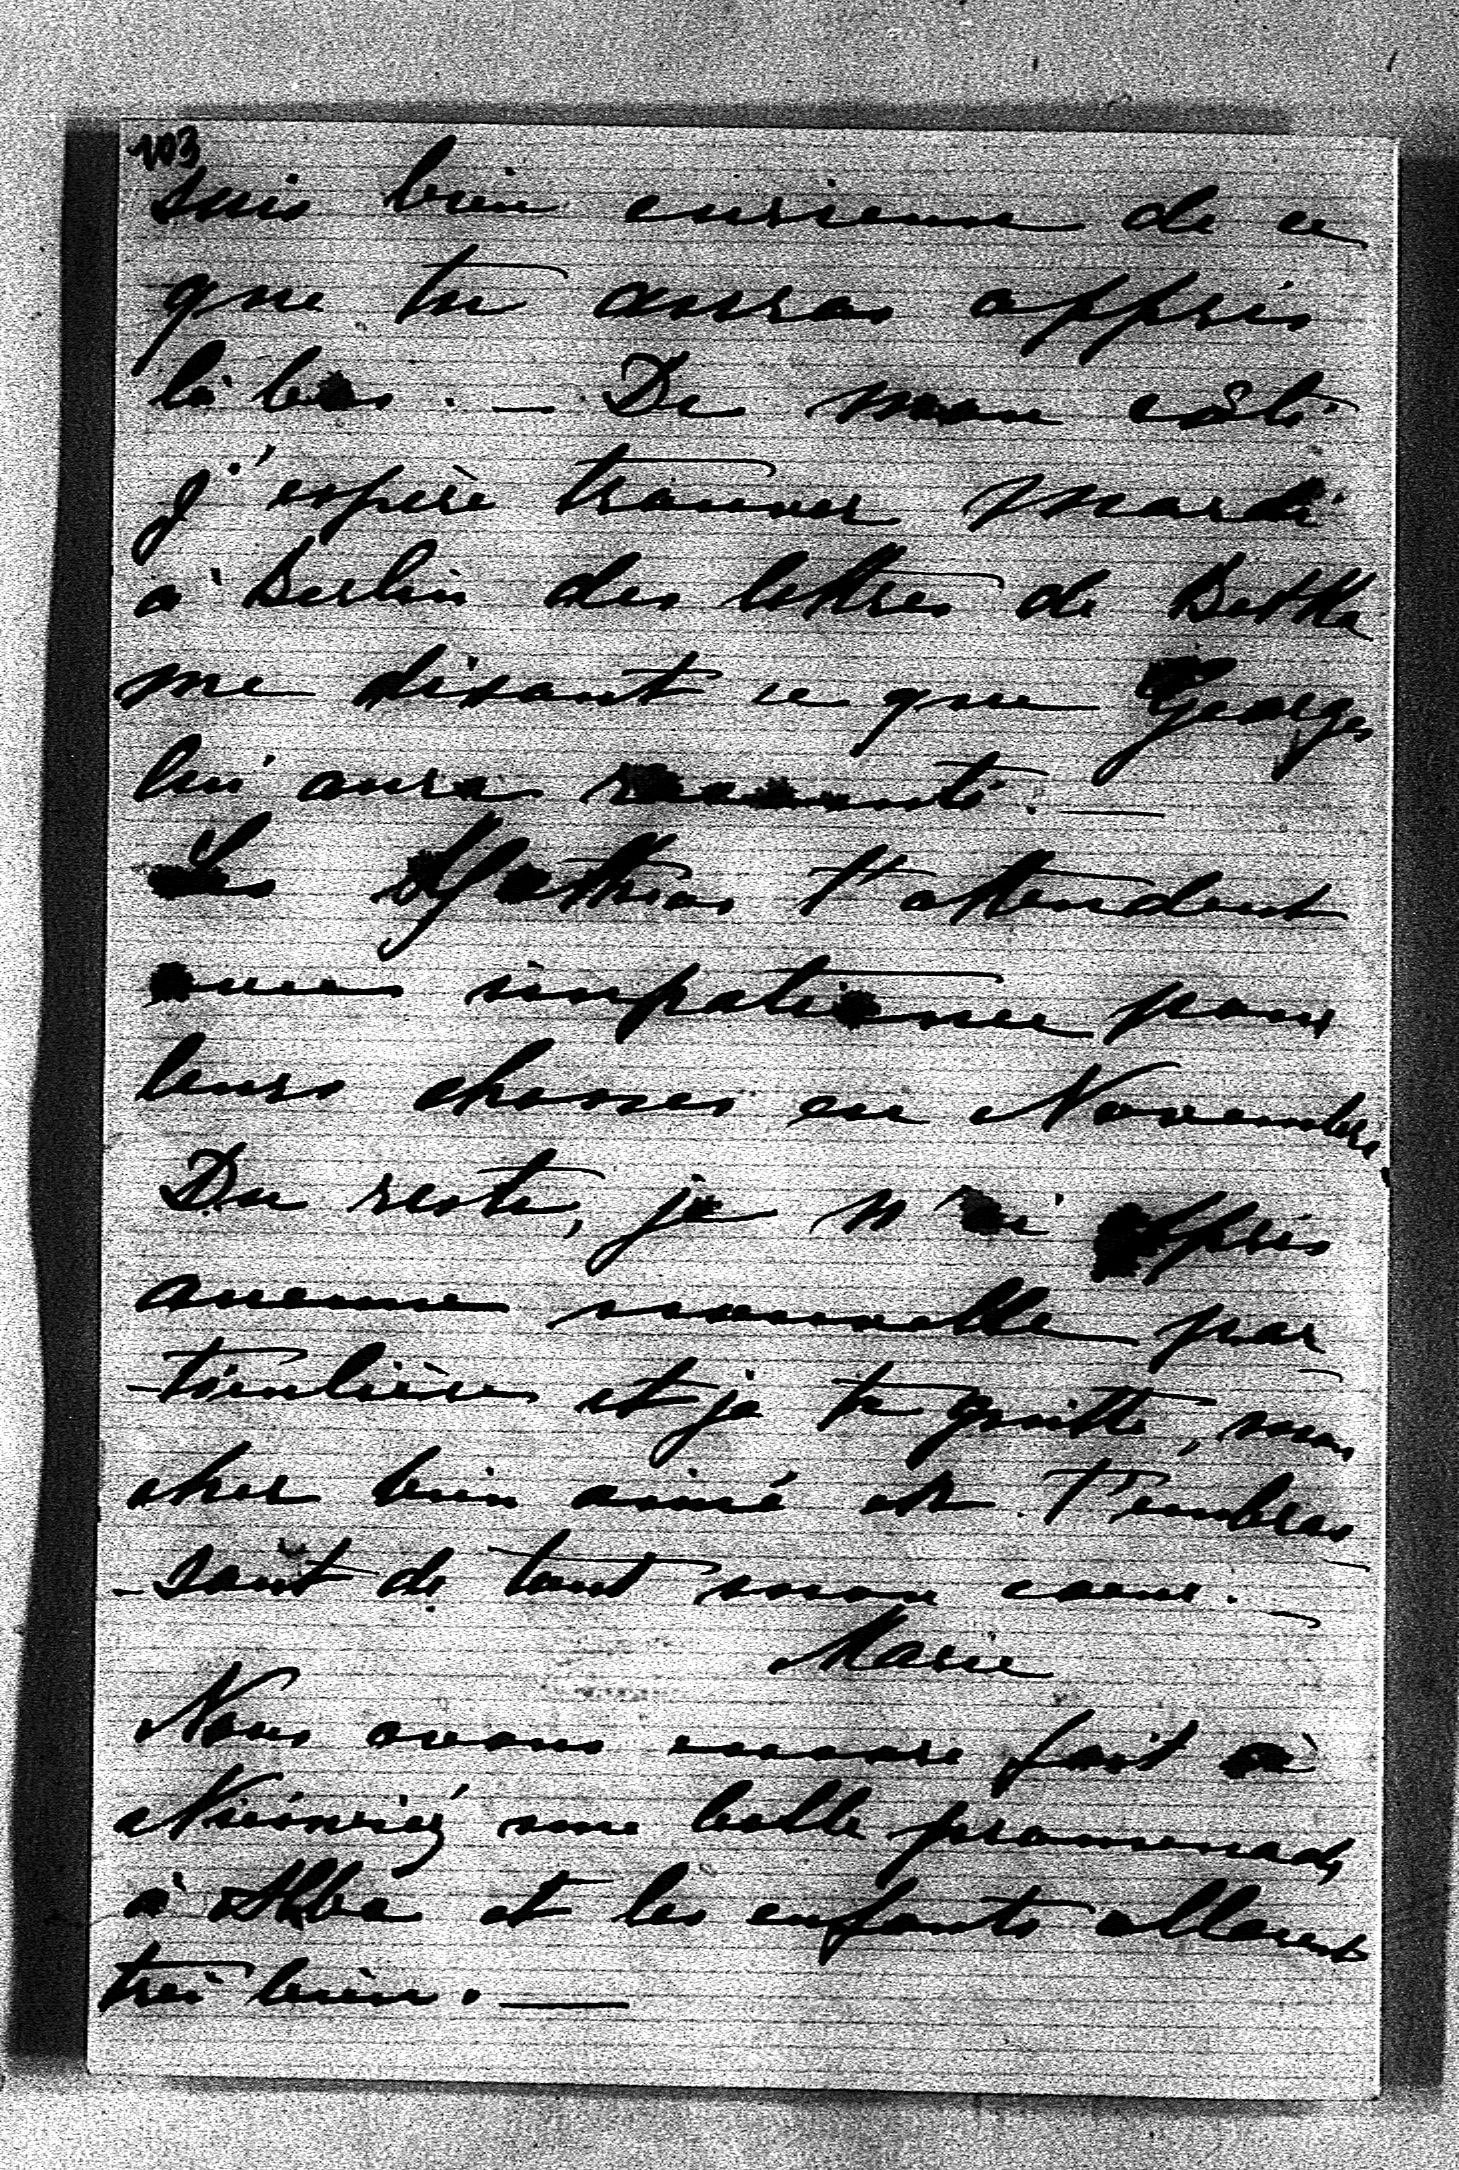 103
suis bien curieuse de ce
que tu auras appris
là bas. — De mon côté
j'espère trouver mardi
à Berlin des lettres de Betka
me disant ce que Georges
lui aura raconté. —
Les t'attendent
avec impatience pour
leurs chasses en Novembre.
Du reste, je n'ai appris
aucune nouvelle par
-ticulière et je te quitte, mon
cher bien aimé en t'embras
-sant de tout mon coeur. —
Marie
Nous avons encore fait à
Nieśwież une belle promenade
à Alba et les enfants allaient
très bien. —